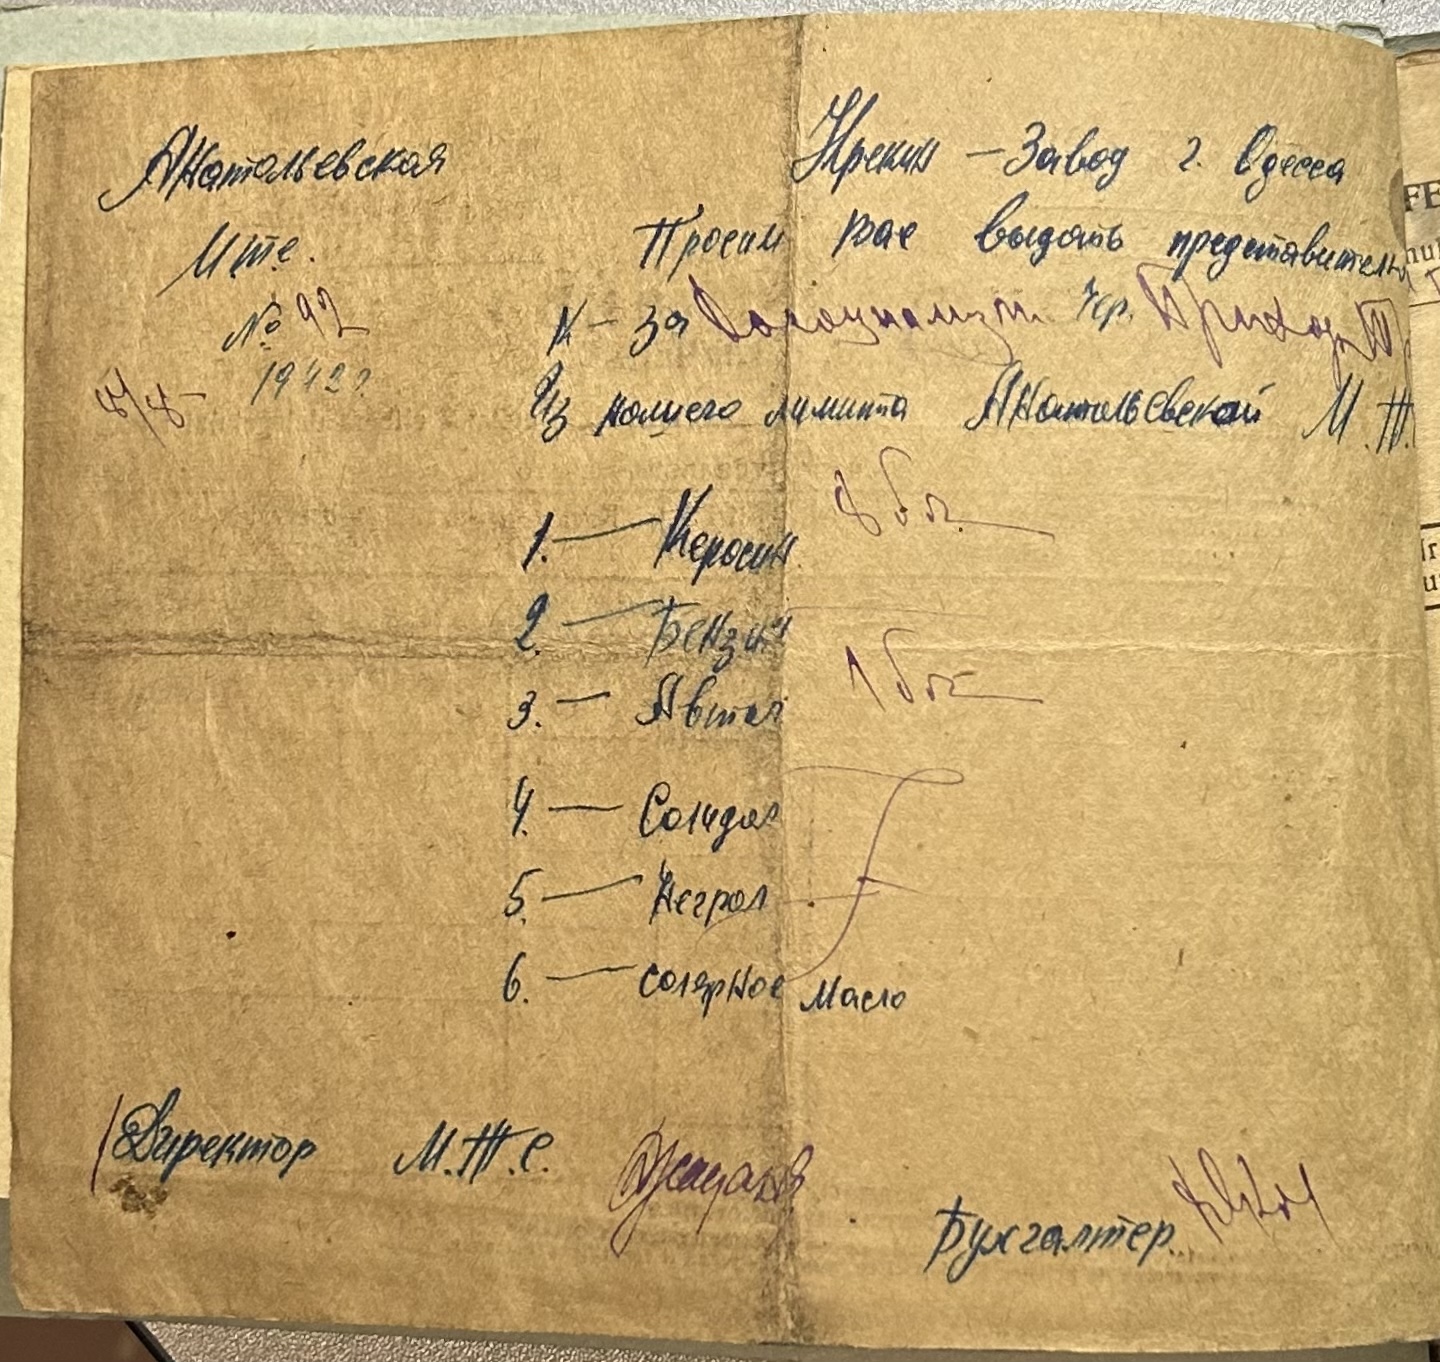 Анатольевская
М.т.с.
№ 92
1942 г.
8/8-
Крекин – Завод г. Одесса
Просим Вас выдать представителю
К – за Чер.
Из нашего лимита Анатольевской М.Т.
1. — Керосин 8 боч.
2. — Бензин
3. — Автол 1 боч.
4. — Солидол
5. — Негрол
6. — Солярное Масло
Директор М.Т.С.
Бухгалтер
FE